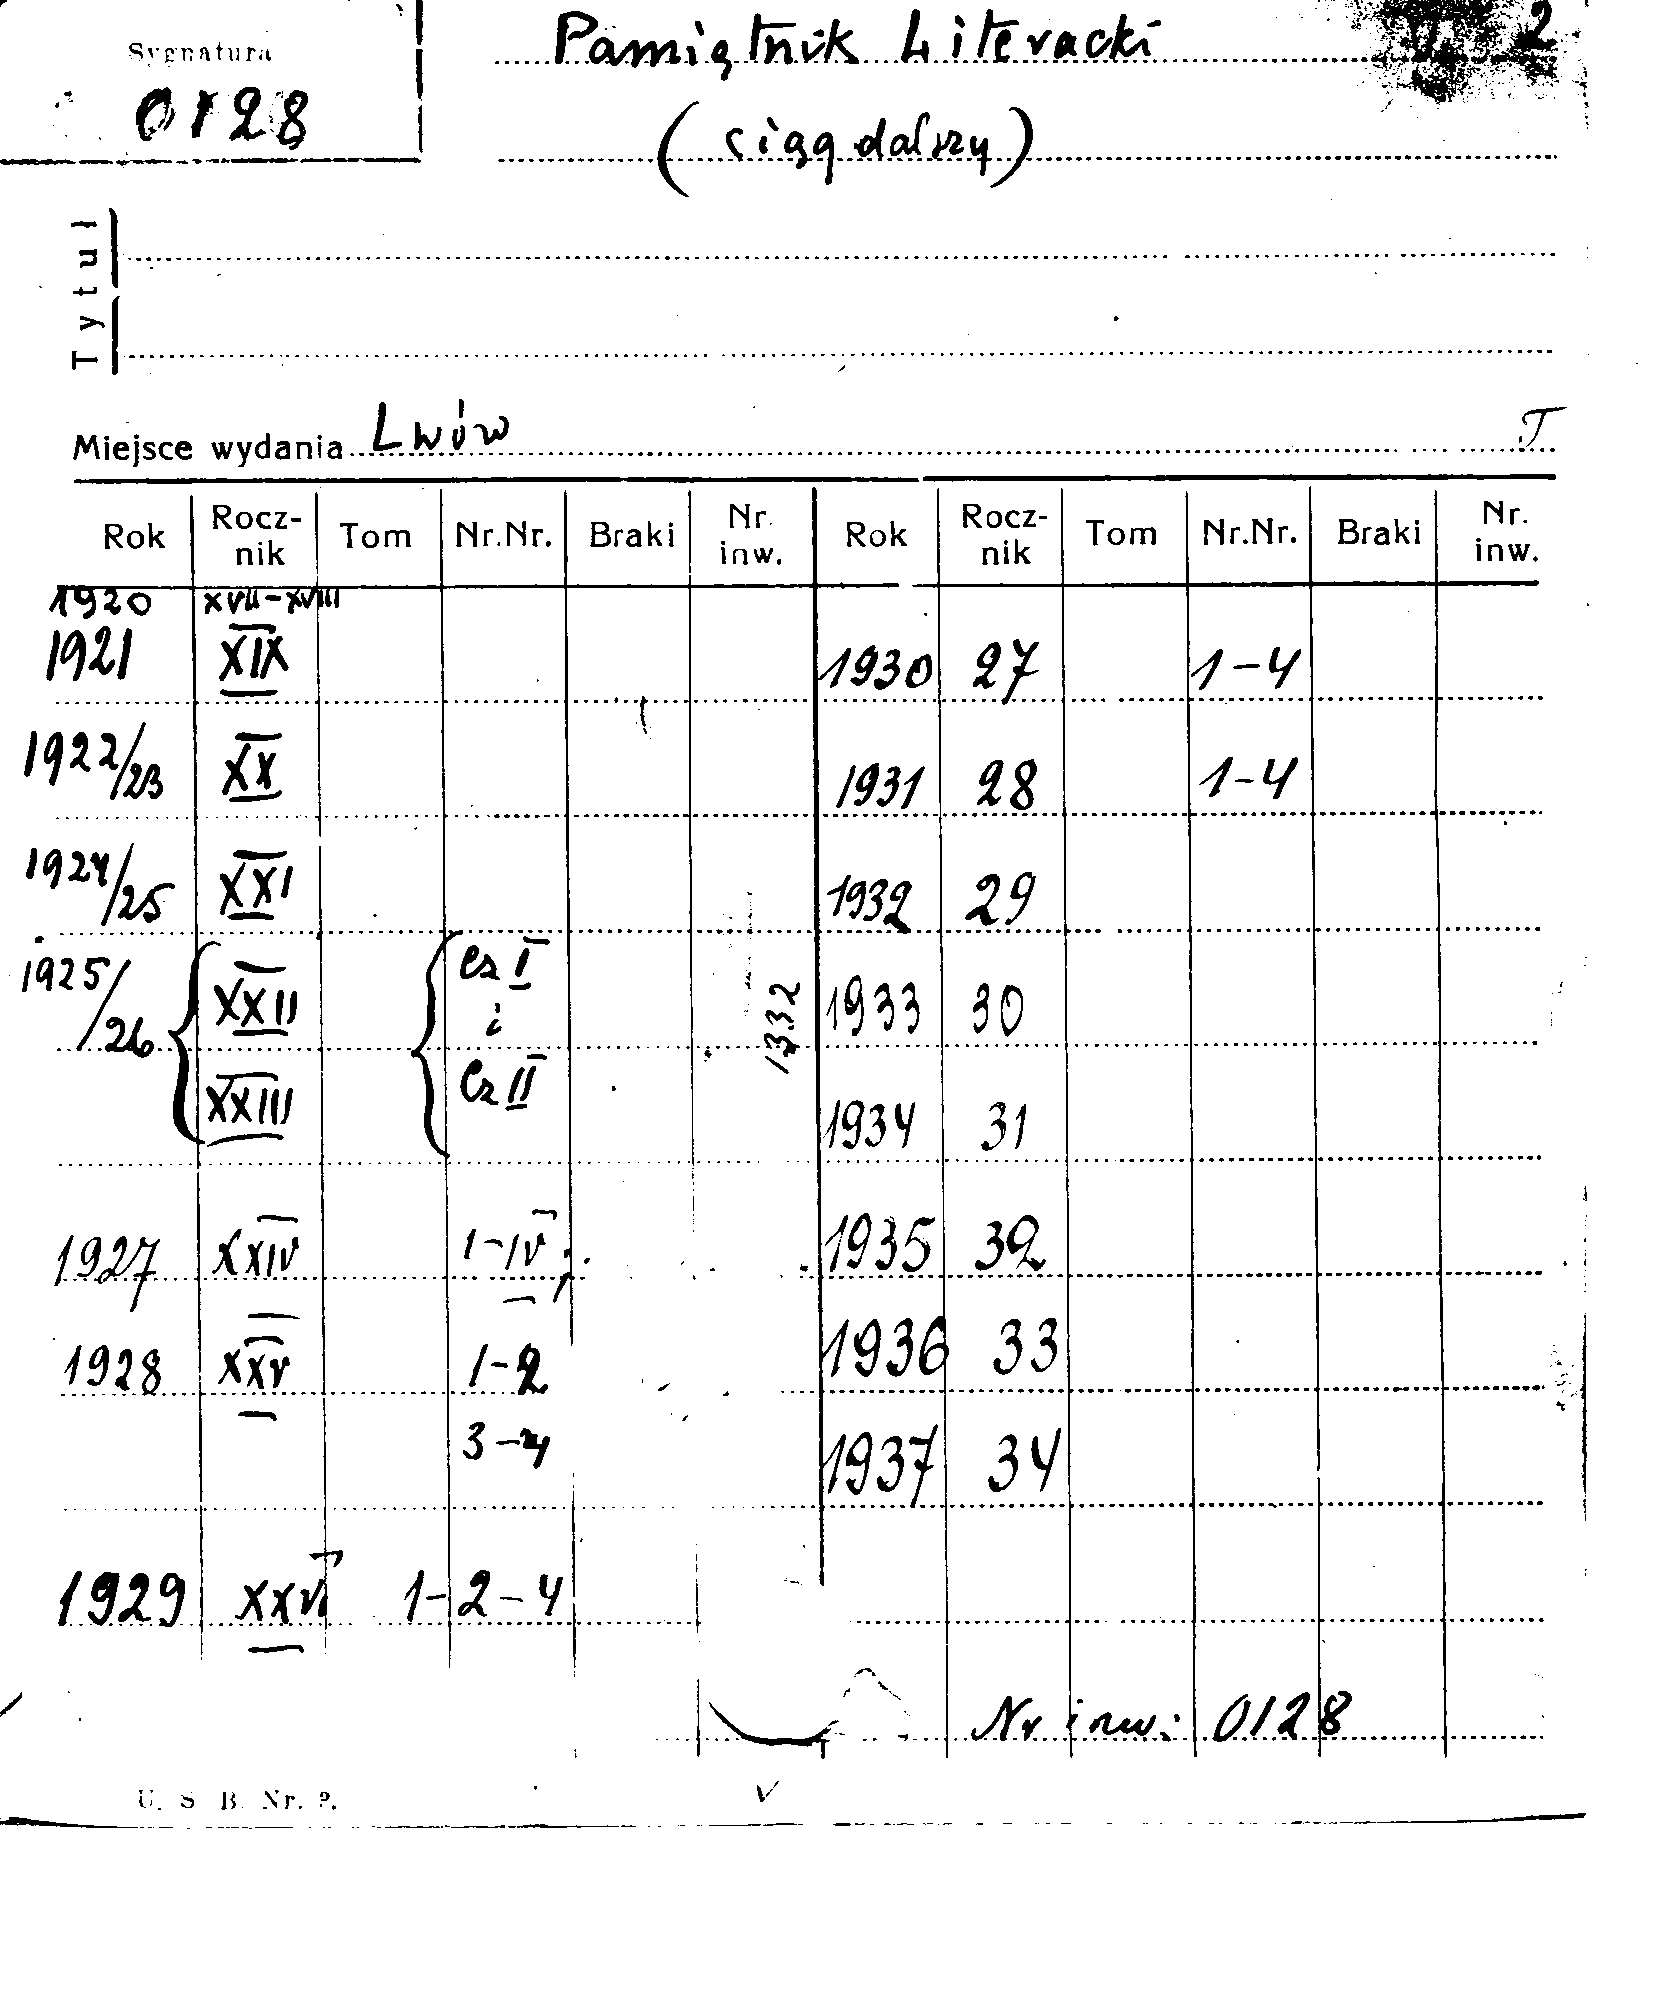 Sygnatura
0128
2
Pamiętnik Literacki
(ciąg dalszy)
Tytuł
Miejsce wydania Lwów T
Rok Rocznik Tom Nr.Nr. Braki Nr. inw. Rok Rocz-nik Tom Nr.Nr. Braki Nr. inw.
1920 XVII-XVIII
1921 XIX 1930 27 1-4
1922/23 XX 1931 28 1-4
1924/25 XXI 1932 29
1925/26 { XXII { Cz I i 1332 1933 30
XXIII Cz II 1934 31
1927 XXIV I-IV 1935 32
1928 XXV 1-2 1936 33
3-4 1937 34
1929 XXVI 1-2-4
Nr inw: 0128
U. S. B. Nr. 9.